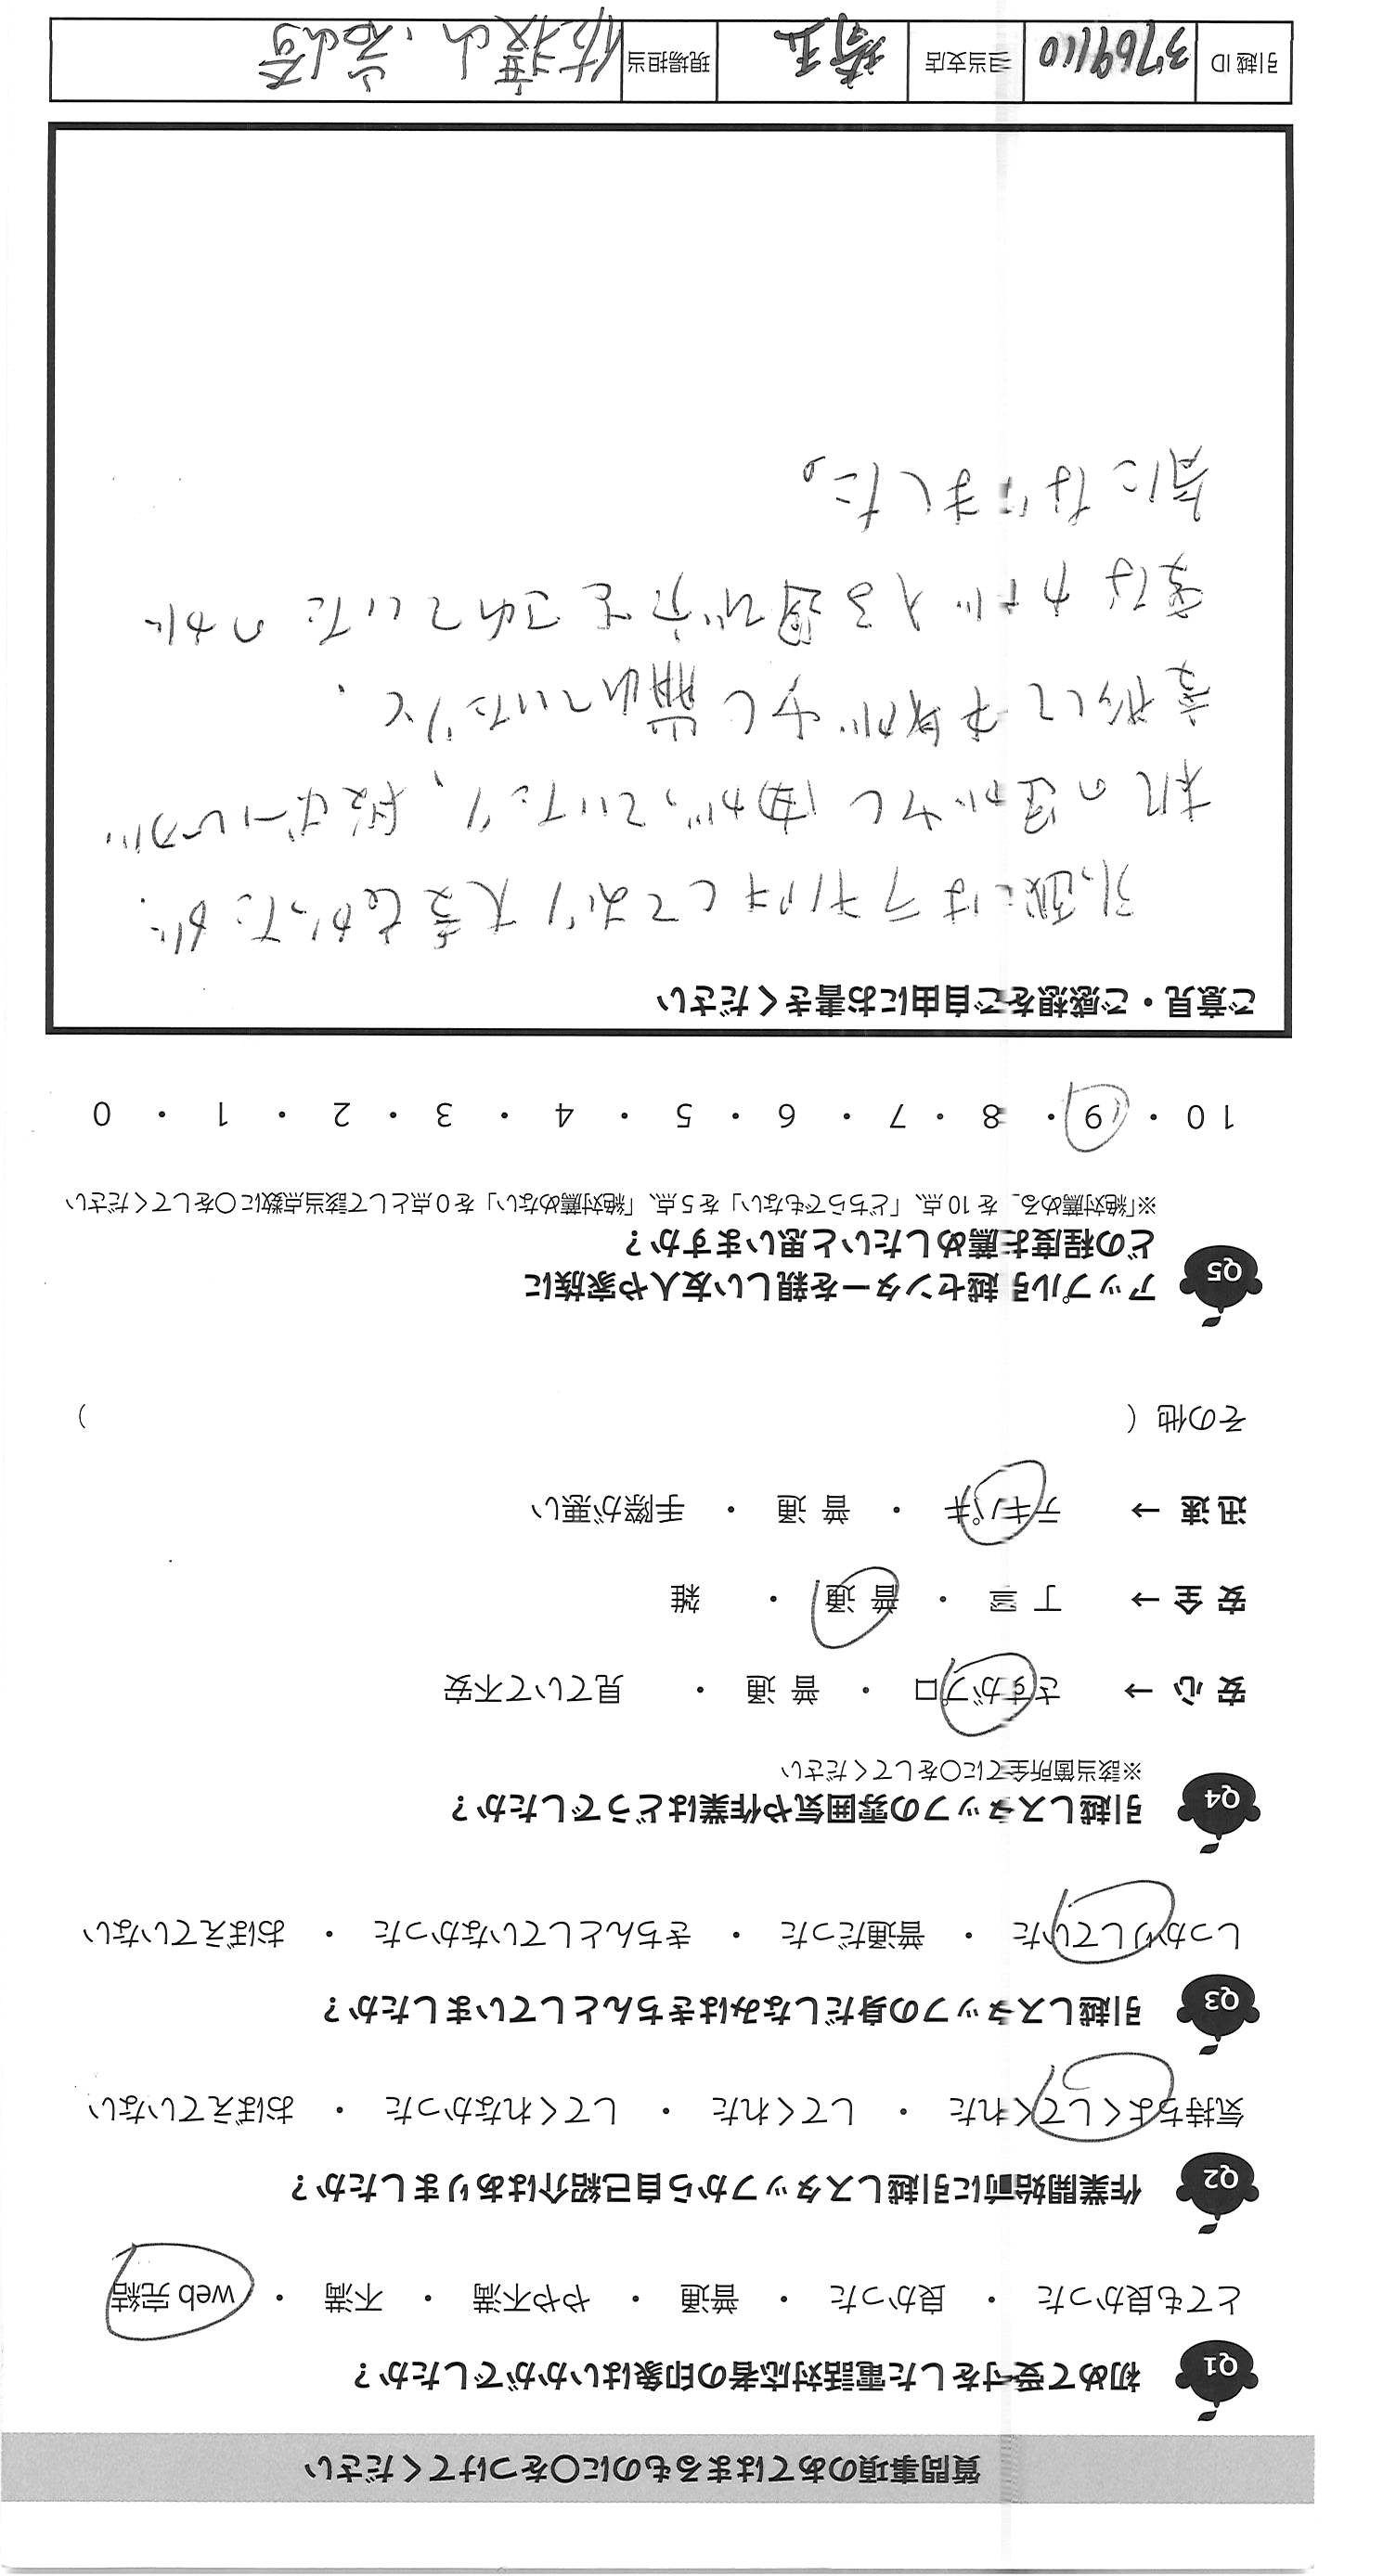 質問事項のあてはまるものに〇をつけてください
Q1 初めて受付をした電話対応者の印象はいかがでしたか？
とても良かった ・ 良かった ・ 普通 ・ やや不満 ・ 不満 ・ web 完結
Q2 作業開始前に引越しスタッフから自己紹介はありましたか？
気持ちよくしてくれた ・ してくれた ・ してくれなかった ・ おぼえていない
Q3 引越しスタッフの身だしなみはきちんとしていましたか？
しっかりしていた ・ 普通だった ・ きちんとしていなかった ・ おぼえていない
Q4 引越しスタッフの雰囲気や作業はどうでしたか？
※該当箇所全てに〇をしてください
安心 → さすがプロ ・ 普通 ・ 見ていて不安
安全 → 丁寧 ・ 普通 ・ 雑
迅速 → テキパキ ・ 普通 ・ 手際が悪い
その他（ ）
Q5 アップル引越センターを親しい友人や家族に
どの程度お薦めしたいと思いますか？
※「絶対薦める」を10点、「どちらでもない」を5点、「絶対薦めない」を0点として該当点数に〇をしてください
10 ・ 9 ・ 8 ・ 7 ・ 6 ・ 5 ・ 4 ・ 3 ・ 2 ・ 1 ・ 0
ご意見・ご感想をご自由にお書きください
引越にはテキパキしており大変よかったが
机の足が少し曲がっていたり、段ボールが
変形して本があ少し潰れていたりと、
気になりました。
引越ID 3769110 担当支店 埼玉 現場担当